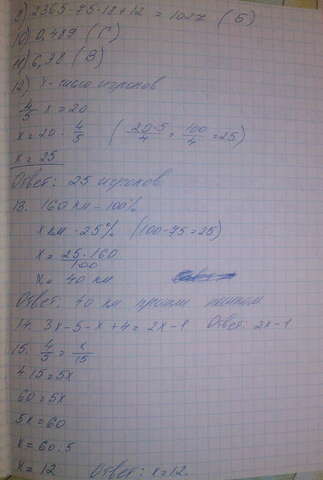 9) 2365-75·18+12 = 1027 (Б)
10) 0,489 (Г)
11) 6,38 (В)
12) х-число игроков
4/5 х = 20
х = 20 : 4/5 ( 20·5/4 = 100/4 = 25)
х = 25
Ответ: 25 игроков
13. 160 км - 100%
х км - 25% (100-75=25)
х = 25·160/100
х = 40 км
Ответ: 40 км прошли пешком
14. 3х-5-х+4 = 2х-1 Ответ: 2х-1
15. 4/5 = х/15
4·15=5х
60=5х
5х=60
х=60:5
х=12 Ответ: х=12.